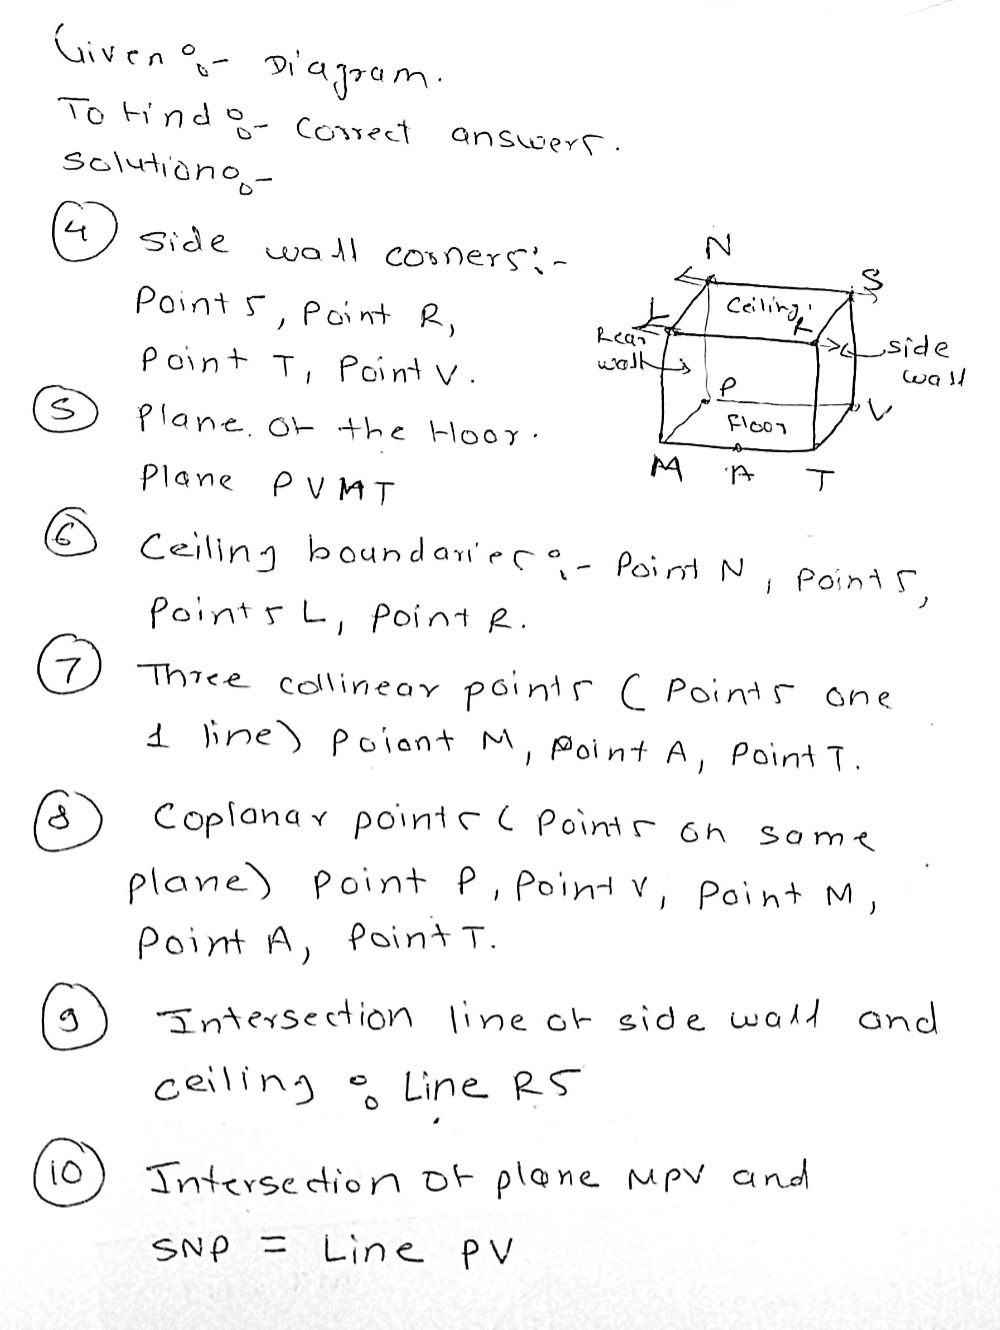 Given :- Diagram.
To find :- Correct answers.
Solution :-
4 Side wall corners :-
Point S, Point R,
Point T, Point V.
5 Plane of the floor.
Plane PVMT
N
S
Ceiling
L
R
Rear
wall
side
wall
P
V
Floor
M A T
6 Ceiling boundaries :- Point N, Point S,
Points L, Point R.
7 Three collinear points ( Points one
1 line) Poiant M, Point A, Point T.
8 Coplanar points ( Points on same
plane) Point P, Point V, Point M,
Point A, Point T.
9 Intersection line of side wall and
ceiling : Line RS
10 Intersection of plane MPV and
SNP = Line PV